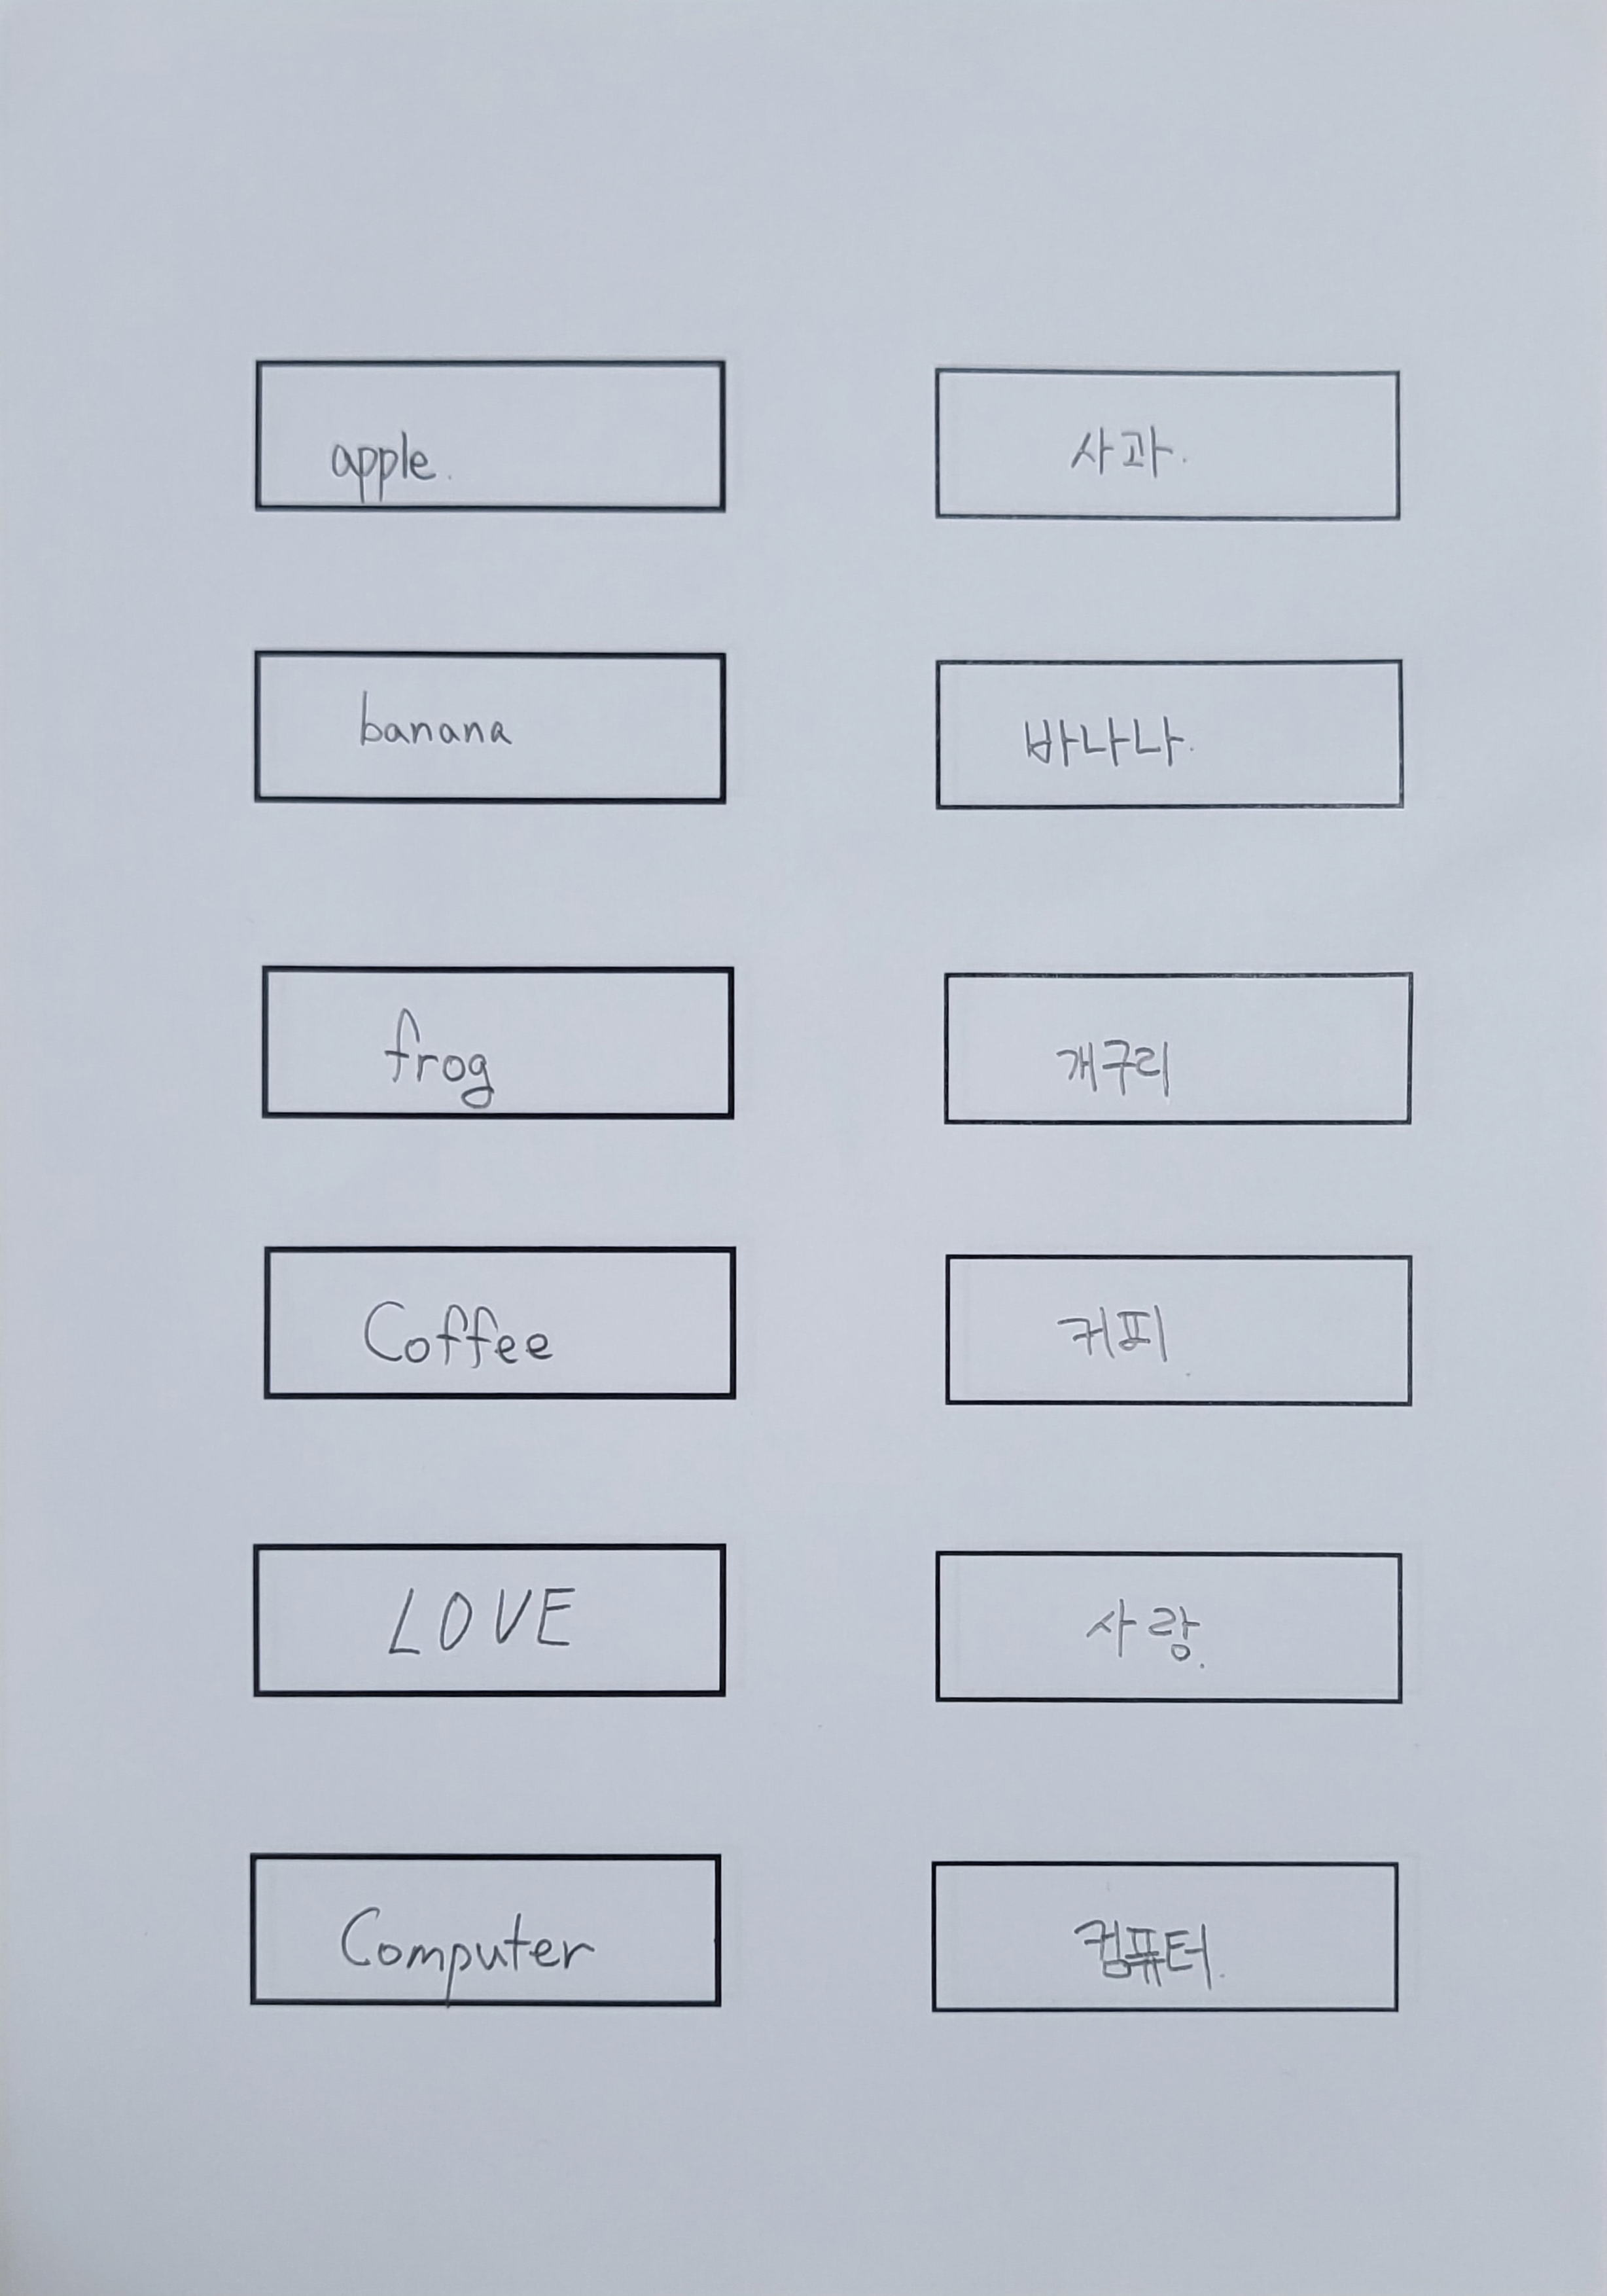 apple.
사과.
banana
바나나.
frog
개구리
Coffee
커피.
LOVE
사랑.
Computer
컴퓨터.